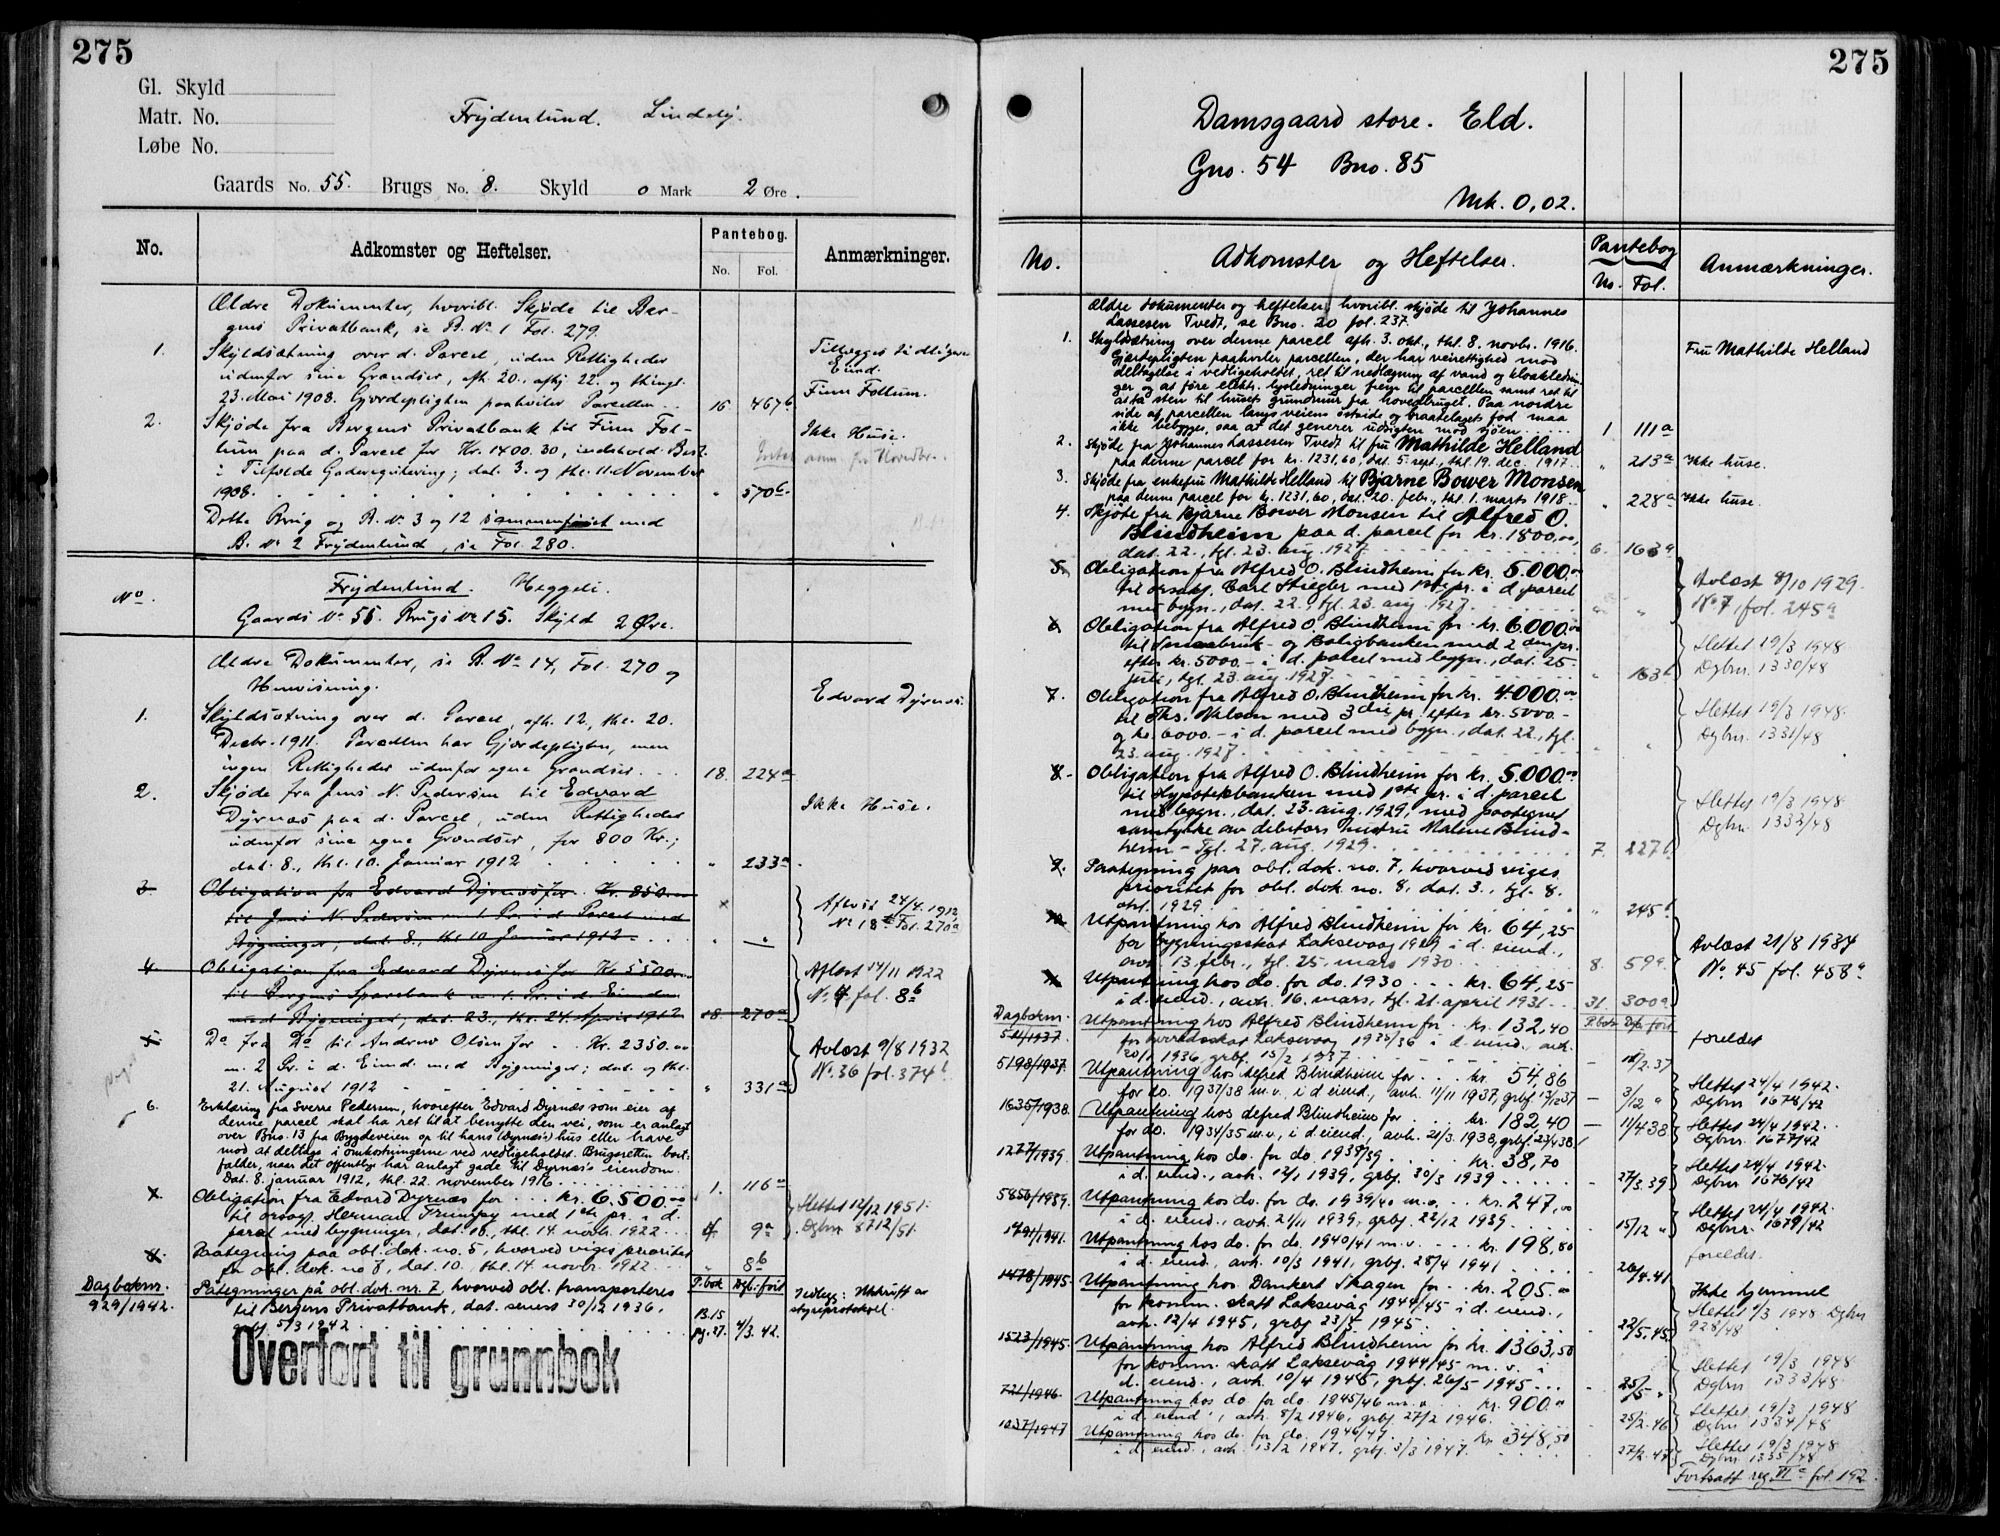 275
Gl. Skyld
Matr. No.
Løbe No.
Frydenlund. Lindely.
Gaards No. 55. Brugs No. 8. Skyld 0 Mark 2 Øre.
No. Adkomster og Heftelser. Pantebog. No. Fol. Anmærkninger.
Ældre Dokumenter, hvoribl. Skjøde til Ber-
gens Privatbank, se B. No 1 Fol. 279.
1. Skyldsætning over d. Parcel, uden Rettigheder
udenfor sine Grændser, afh. 20., afhj 22. og thingl.
23. Mai 1908. Gjærdepligten paahviler Parcellen .. 16 467b
Finn Follum.
2. Skjøde fra Bergens Privatbank til Finn Fol-
lum paa d. Parcel for Kr. 1400.30, indehold. Best.
i Tilfælde Gaderegulering; dat. 3. og thl. 11 November
1908. " 570b
Ikke Huse.
Dette Brug og B. No 3 og 12 sammenføiet med
B. No 2 Frydenlund, se Fol. 280.
No. Frydenlund. Heggeli.
Gaards No 55. Brugs No 15. Skyld 2 Øre.
Ældre Dokumenter, se B. No 14, Fol. 270 og
Henvisning.
1. Skyldsætning over d. Parcel, afh. 12., thl. 20.
Decbr. 1911. Parcellen har Gjærdepligten, men
ingen Rettigheder udenfor egne Grændser. 18. 224a
Edvard Dyrnæs.
2. Skjøde fra Jens N. Pedersen til Edvard
Dyrnæs paa d. Parcel, uden Rettigheder
udenfor sine egne Grændser, for 800 Kr.;
dat. 8., thl. 10. Januar 1912 " 233a
Ikke Huse.
3. Obligation fra Edvard Dyrnæs for Kr. 850.
til Jens N. Pedersen m. 1 Pr. i d. Parcel med
Bygninger, dat. 8., thl. 10 Januar 1912. " "
Aflæst 24/4. 1912
No 18 Fol. 270a
4. Obligation fra Edvard Dyrnæs for Kr 5500
til Bergens Sparebank m. 1. Pr. i d. Eiendom
med Bygninger, dat. 23., thl. 24. April 1912 18. 270a
Aflæst 14/11 1922
No. 4 fol. 8b
5. Do fra Do til Andrew Olsen for . . Kr. 2350.00
m. 2 Pr. i d. Eiend. med Bygninger; dat. og thl.
21. August 1912 " 331a
Avlæst 9/8 1932
No. 36 fol. 374b
6. Erklæring fra Sverre Pedersen, hvorefter Edvard Dyrnæs som eier af
denne parcel skal ha ret til at benytte den vei, som er anlagt
over Bno. 13 fra Bygdeveien op til hans (Dyrnæs's) hus eller have
mod at deltage i omkostningerne ved vedligeholdet. Brugsretten bort-
falder, naar det offentlige har anlagt gade til Dyrnæs's eiendom.
Dat. 8. januar 1912, thl. 22. november 1916 1. 116a
7. Obligation fra Edvard Dyrnæs for ... kr. 6.500.00
til orsagf. Herman Trumpy med 1ste pr. i d.
parcel med bygninger, dat. 10., thl. 14. novbr. 1922 ... 4 9a
Slettet 12/12 1951.
Dgbnr 8712/51.
8. Paategning paa obl. dok. no. 5, hvorved viges prioritet
for obl. dok. no 7, dat. 10., thl. 14. novbr. 1922 " 8b
P.bok Dgb. ført
Dagboknr.
929/1942. Påtegninger på obl. dok. nr. 7, hvorved obl. transporteres
til Bergens Privatbank, dat. senest 30/12 1936,
grbf. 5/3 1942 B.15 pg. 27. 4/3. 42.
Vedlegg: Utskrift av
styreprotokol.
Overført til grunnbok
275
Damsgaard store. Eld.
Gno. 54 Bno. 85
Mrk. 0,02.
No. Adkomster og Heftelser. Pantebog No. Fol. Anmærkninger.
Ældre dokumenter og heftelser, hvoribl. skjøde til Johannes
Lassesen Tvedt, se Bno. 20 fol. 237.
1. Skyldsætning over denne parcel afh. 3. okt., thl. 8. novbr. 1916.
Gjærdepligten paahviler parcellen, der har veirettighed mod
deltagelse i vedligeholdet, ret til nedlægning af vand og kloakledнin-
ger og at føre elektr. lysledninger frem til parcellen samt ret til
at ta sten til husets grundmur fra hovedbruget. Paa nordre
side af parcellen langs veiens østside og braatelagets fod maa
ikke bebygges, saa at det generer udsigten mod sjøen .... 1. 111a
Fru Mathilde Helland
2. Skjøde fra Johannes Lassesen Tvedt til fru Mathilde Helland
paa denne parcel for kr. 1231,60, dat. 5. sept., thl. 19. dec. 1917 " 213a Ikke huse.
3. Skjøde fra enkefru Mathilde Helland til Bjarne Bower Monsen
paa denne parcel for kr. 1231.60, dat. 20. febr., thl. 1. marts 1918 .. " 228a Ikke huse.
4. Skjøte fra Bjarne Bower Monsen til Alfred O.
Blindheim paa d. parcel for kr. 1800,00,
dat. 22., tgl. 23. aug. 1927 6. 163a
5. Obligation fra Alfred O. Blindheim for kr. 5.000.00
til orsakf. Carl Stiegler med 1ste pr. i d. parcel
med bygn., dat. 22., tgl. 23. aug 1927 " "
Avlæst 8/10 1929.
No. 7, fol. 245a
6. Obligation fra Alfred O. Blindheim for kr. 6.000.00
til Smaabruk- og Boligbanken med 2den pr.
efter kr. 5000.- i d. parcel med bygn., dat. 25.
juli, tgl. 23. aug. 1927 " 163b
Slettet 19/3 1948
Dgbnr. 1330/48
7. Obligation fra Alfred O. Blindheim for kr. 4.000.00
til Ths. Nilsen med 3die pr. efter kr. 5000.-
og kr. 6000.- i d. parcel med bygn., dat. 22., tgl.
23. aug. 1927 " "
Slettet 19/3 1948.
Dgbnr. 1331/48
8. Obligation fra Alfred O. Blindheim for kr. 5.000.00
til Hypotekbanken med 1ste pr. i d. parcel
med bygn., dat. 23. aug. 1929, med paategnet
samtykke av debitors hustru Maline Blind-
heim - Tgl. 27. aug. 1929 7. 227b
Slettet 19/3 1948
Dgbnr. 1332/48
9. Paategning paa obl. dok. no. 7, hvorved viges
prioritet for obl. dok. no. 8, dat. 3., tgl. 8.
okt. 1929 " 245b
10. Utpantning hos Alfred Blindheim for kr. 64,25
for bygningsskat Laksevaag 1929 i d. eiend.,
avh. 13. febr., tgl. 25. mars 1930 8. 59a
Avlæst 21/8 1934
No. 45 fol. 458a
Utpantning hos do. for do. 1930 ... kr. 64,25
i d. eiend., avh. 16. mars, tgl. 21. april 1931 .. 31. 300a
P.bok Dgb. ført
Dagboknr.
Utpantning hos Alfred Blindheim for . kr. 132,40
for herredsskat Laksevaag 1935/36 i d. eiend., avh.
20/1 1936, grbf. 15/2 1937 - 15/2. 37
foreldet
5198/1937. Utpantning hos Alfred Blindheim for ... kr. 54,86
for do. 1937/38 m.v. i d. eiend., avh. 11/11 1937, grbf. 13/12 37 - 3/12 "
Slettet 24/4 1942.
Dgbnr 1678/42
1635/1938. Utpantning hos Alfred Blindheim for ... kr. 182,40
for do. 1934/35 m.v., i d. eiend., avh. 21/3. 1938, grbf. 27/4 38 - 11/4 38
Slettet 24/4 1942.
Dgbnr. 1677/42
1277/1939. Utpantning hos do. for do. 1938/39 kr. 38,70
i d. eiend., avh. 12/1 1939, grbf. 30/3 1939 27/3. 39
Slettet 24/4 1942.
Dgbnr 1676/42
5856/1939. Utpantning hos do. for do. 1939/40 m.v. .. kr. 247,00
i d. eiend., avh. 21/11 1939, grbf. 22/12 1939 15/12 "
Slettet 24/4 1942.
Dgbnr. 1679/42
1791/1941. Utpantning hos do. for do. 1940/41 m.v. ... kr. 198,80
i d. eiend., avh. 10/3 1941, grbf. 28/4 1941 26/4. 41
foreldet.
1478/1945. Utpantning hos Dankert Skagen for kr. 205.00
for komm. skatt Laksevåg 1944/45 i d. eiend.,
avh. 12/4 1945, grbf 23/5 1945 22/5. 45.
Ikke hjemmel
928/48
1523/1945. Utpantning hos Alfred Blindheim for kr. 1363,50
for komm. skatt Laksevåg 1944/45 m. v. i
d. eiend., avh. 10/4 1945, grbf. 26/5 1945 ... 25/5 "
Slettet 19/3 1948
Dgbnr 1333/48.
721/1946. Utpantning hos do. for do 1945/46 m. v. kr. 900.
i d. eiend., avh. 8/2 1946, grbf. 27/2 1946. 25/2. 46
Slettet 19/3 1948
Dgbnr 1334/48
1037/1947 Utpantning hos do. for do. 1946/47. kr. 348,50
i d. eiend., avh. 13/2 1947, grbf. 3/3 1947. 27/2. 47
Slettet 19/3 1948
Dgbnr. 1335/48
Fortsatt reg. VI a fol. 192.